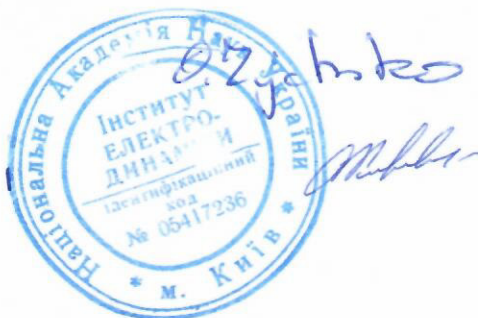 Національна Академія Наук України
* м. Київ *
Інститут
ЕЛЕКТРО-
ДИНАМІКИ
ідентифікаційний
код
№ 05417236